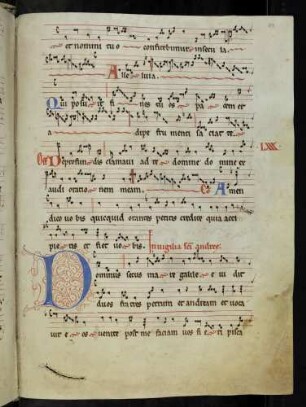 et nomini tuo confitebimur in secula
Alleluia
Qui posuit fines tuos pacem et
adipe frumenti saciat te
Of De profundis clamaui ad te domine domine ex
audi orationem meam Co Amen
dico uobis quicquid orantes petitis credite quia acci
pietis et fiet uobis In uigilia sci andree
Dominus secus mare galilee uidit
duos fratres petrum et andream et uoca
uit eos uenite post me faciam uos fieri pisca